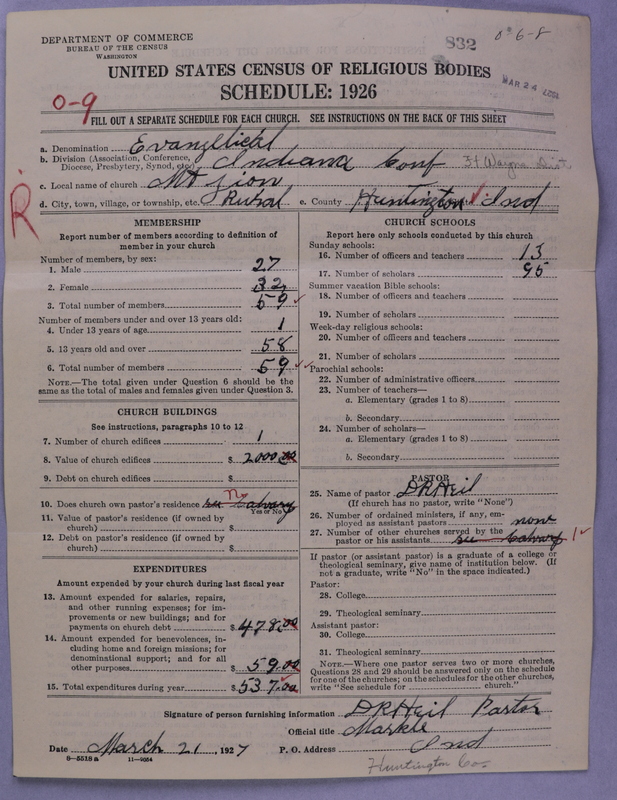 DEPARTMENT OF COMMERCE
BUREAU OF THE CENSUS
WASHINGTON
832
0-6-8
MAR 24
UNITED STATES CENSUS OF RELIGIOUS BODIES
SCHEDULE: 1926
0-9
FILL OUT A SEPARATE SCHEDULE FOR EACH CHURCH. SEE INSTRUCTIONS ON THE BACK OF THIS SHEET
R
a. Denomination Evangelical
b. Division (Association, Conference, Diocese, Presbytery, Synod, etc.) Indiana Conf Ft Wayne Dist
c. Local name of church Mt Zion
d. City, town, village, or township, etc. Rural e. County Huntington Ind
MEMBERSHIP
Report number of members according to definition of
member in your church
Number of members, by sex:
1. Male 27
2. Female 32
3. Total number of members 59
Number of members under and over 13 years old:
4. Under 13 years of age 1
5. 13 years old and over 58
6. Total number of members 59
NOTE.—The total given under Question 6 should be the
same as the total of males and females given under Question 3.
CHURCH BUILDINGS
See instructions, paragraphs 10 to 12
7. Number of church edifices 1
8. Value of church edifices $ 2000.00
9. Debt on church edifices $
10. Does church own pastor's residence see Calvary No
Yes or No
11. Value of pastor's residence (if owned by
church) $
12. Debt on pastor's residence (if owned by
church) $
EXPENDITURES
Amount expended by your church during last fiscal year
13. Amount expended for salaries, repairs,
and other running expenses; for im-
provements or new buildings; and for
payments on church debt $ 478.00
14. Amount expended for benevolences, in-
cluding home and foreign missions; for
denominational support; and for all
other purposes $ 59.00
15. Total expenditures during year $ 537.00
CHURCH SCHOOLS
Report here only schools conducted by this church
Sunday schools:
16. Number of officers and teachers 13
17. Number of scholars 95
Summer vacation Bible schools:
18. Number of officers and teachers
19. Number of scholars
Week-day religious schools:
20. Number of officers and teachers
21. Number of scholars
Parochial schools:
22. Number of administrative officers
23. Number of teachers—
a. Elementary (grades 1 to 8)
b. Secondary
24. Number of scholars—
a. Elementary (grades 1 to 8)
b. Secondary
PASTOR
25. Name of pastor D R Heil
(If church has no pastor, write "None")
26. Number of ordained ministers, if any, em-
ployed as assistant pastors none
27. Number of other churches served by the
pastor or his assistants see Calvary 1
If pastor (or assistant pastor) is a graduate of a college or
theological seminary, give name of institution below. (If
not a graduate, write "No" in the space indicated.)
Pastor:
28. College
29. Theological seminary
Assistant pastor:
30. College
31. Theological seminary
NOTE.—Where one pastor serves two or more churches,
Questions 28 and 29 should be answered only on the schedule
for one of the churches; on the schedules for the other churches,
write "See schedule for church."
Signature of person furnishing information D R Heil Pastor
Official title Markle
Date March 21, 1927 P. O. Address Ind
8-5518 a 11-9054
Huntington Co.